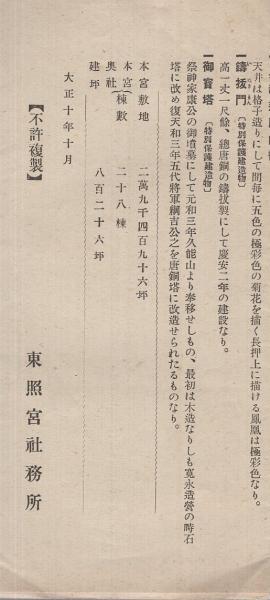 天井は格子造りにして間毎に五色の極彩色の菊花を描く長押上に描ける鳳凰は極彩色なり。
一鑄拔門〔特別保護建造物〕
高一丈一尺餘、總唐銅の鑄拔製にして慶安二年の建設なり。
一御寶塔〔特別保護建造物〕
祭神家康公の御墳墓にして元和三年久能山より奉移せしもの、最初は木造なりしも寬永造營の時石
塔に改め復天和三年五代將軍綱吉公之を唐銅塔に改造せられたるものなり。
本宮敷地 二萬九千四百九十六坪
本宮 奧社(棟數 二十八棟
建坪 八百二十六坪
大正十年十月
【不許複製】
東照宮社務所